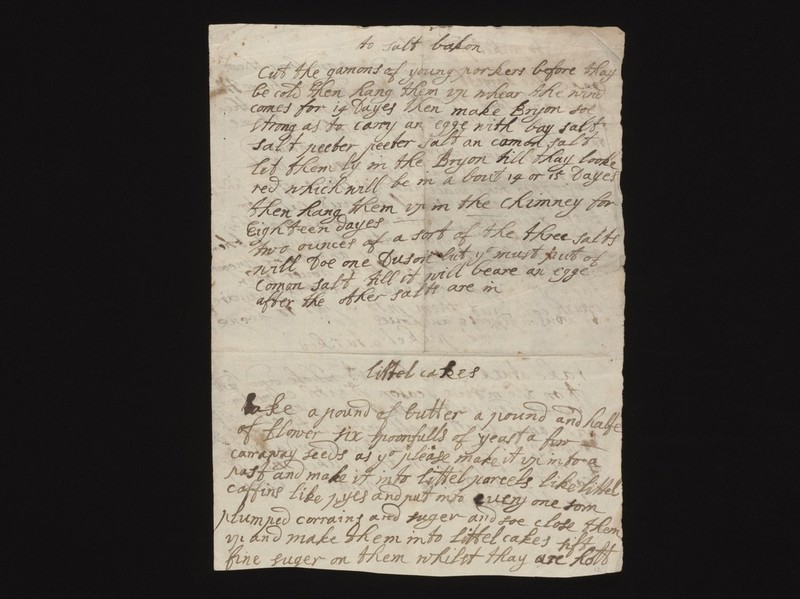 to salt bakon
Cut the gamons of young porkers before thay
be cold then hang them vp whear the wind
comes for 14 Dayes then make Bryon soe
strong as to carry an egge with bay salt
salt peeter peeter salt an comon salt
let them ly in the Bryon till thay looke
red which will be in a bout 14 or 15 Dayes
then hang them vp in the Chimney for
Eighteen dayes
two ounces of a sort of the three salts
will Doe one Duson but ye must put of
Comon salt till it will beare an egge
after the other salts are in
littel cakes
take a pound of butter a pound and halfe
of flower six spoonfulls of yeast a few
carraway seeds as yo please make it vp into a
past and make it into littel parcels like littel
caffins like pyes and put into euery one som
plumped corrains and suger and soe close them
vp and make them into littel cakes sift
fine suger on them whilst thay are hott